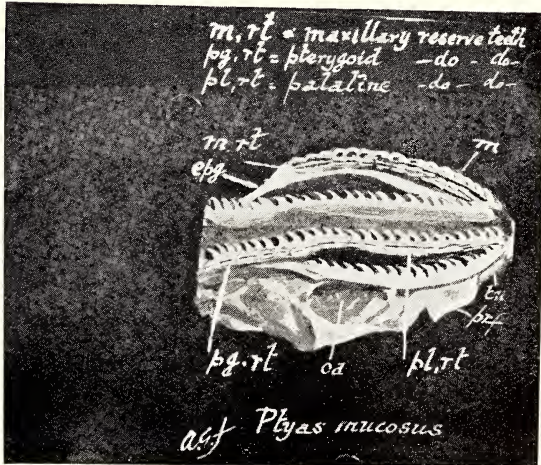 m, rt = maxillary reserve teeth
pg, rt = pterygoid -do- do-
pl, rt = palatine -do- do-
m rt
m
epg
prf
pg. rt
oa
pl, rt
Ptyas mucosus